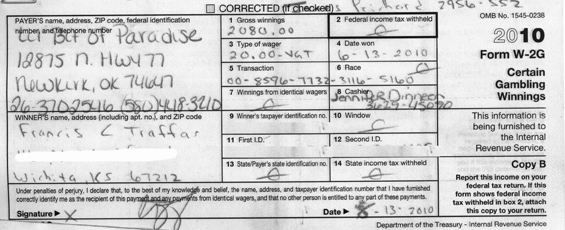 CORRECTED (if checked)
OMB No. 1545-0238
PAYER'S name, address, ZIP code, federal identification number, and telephone number
Lil Bit of Paradise
12875 N. Hwy 77
Newkirk, OK 74647
1 Gross winnings
2080.00
2 Federal income tax withheld
3 Type of wager
20.00-VGT
4 Date won
6-13-2010
5 Transaction
00-8596-7732-3116-5160
6 Race
7 Winnings from identical wagers
8 Cashier
2010
Form W-2G
Certain Gambling Winnings
WINNER'S name, address (including apt. no.), and ZIP code
Francis C Traffas
Wichita KS 67212
9 Winner's taxpayer identification no.
10 Window
11 First I.D.
12 Second I.D.
13 State/Payer's state identification no.
14 State income tax withheld
This information is being furnished to the Internal Revenue Service.
Copy B
Report this income on your federal tax return. If this form shows federal income tax withheld in box 2, attach this copy to your return.
Under penalties of perjury, I declare that, to the best of my knowledge and belief, the name, address, and taxpayer identification number that I have furnished
correctly identify me as the recipient of this payment and any payments from identical wagers, and that no other person is entitled to any part of these payments.
Signature ▶ X
Date ▶ -13-2010
Department of the Treasury - Internal Revenue Service